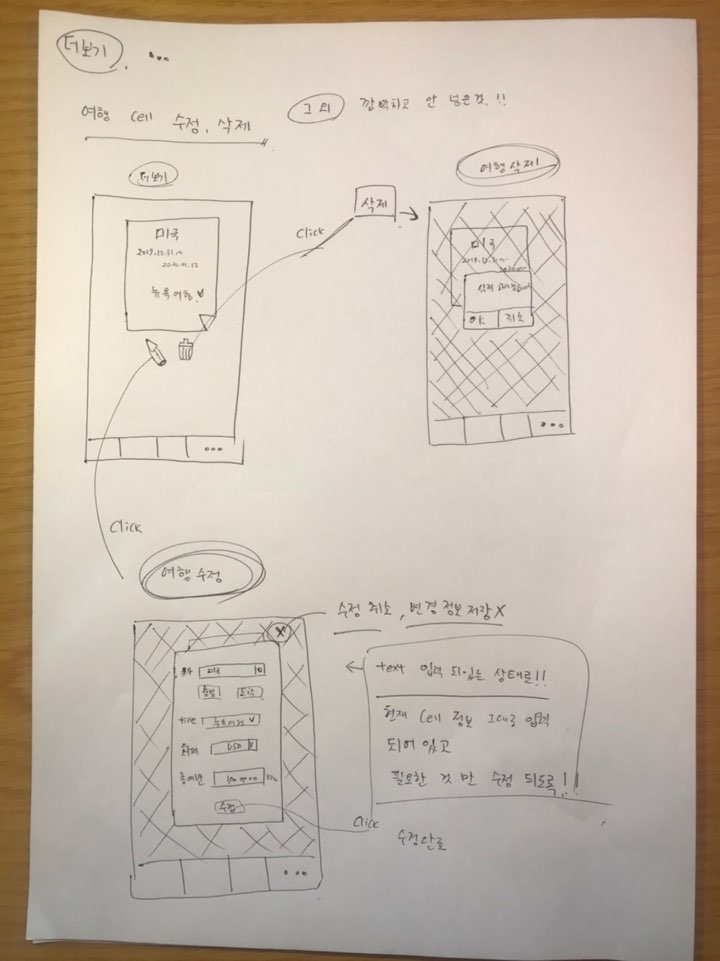 더보기 ...
여행 cell 수정, 삭제
그 외 깜빡하고 안 넣은것.!!
더보기
미국
2019.12.31 ~
2020.01.12
뉴욕 여행
Click
삭제
여행 삭제
미국
2019.12.31 ~
삭제
OK 취소
Click
여행 수정
X
수정 취소, 변경 정보 저장 X
미국
출발 도착
title 뉴욕여행
화폐 USD
총예산
수정
text 입력 되있는 상태로!!
현재 Cell 정보 그대로 입력
되어 있고
필요한 것 만 수정 되도록!!
Click
수정완료